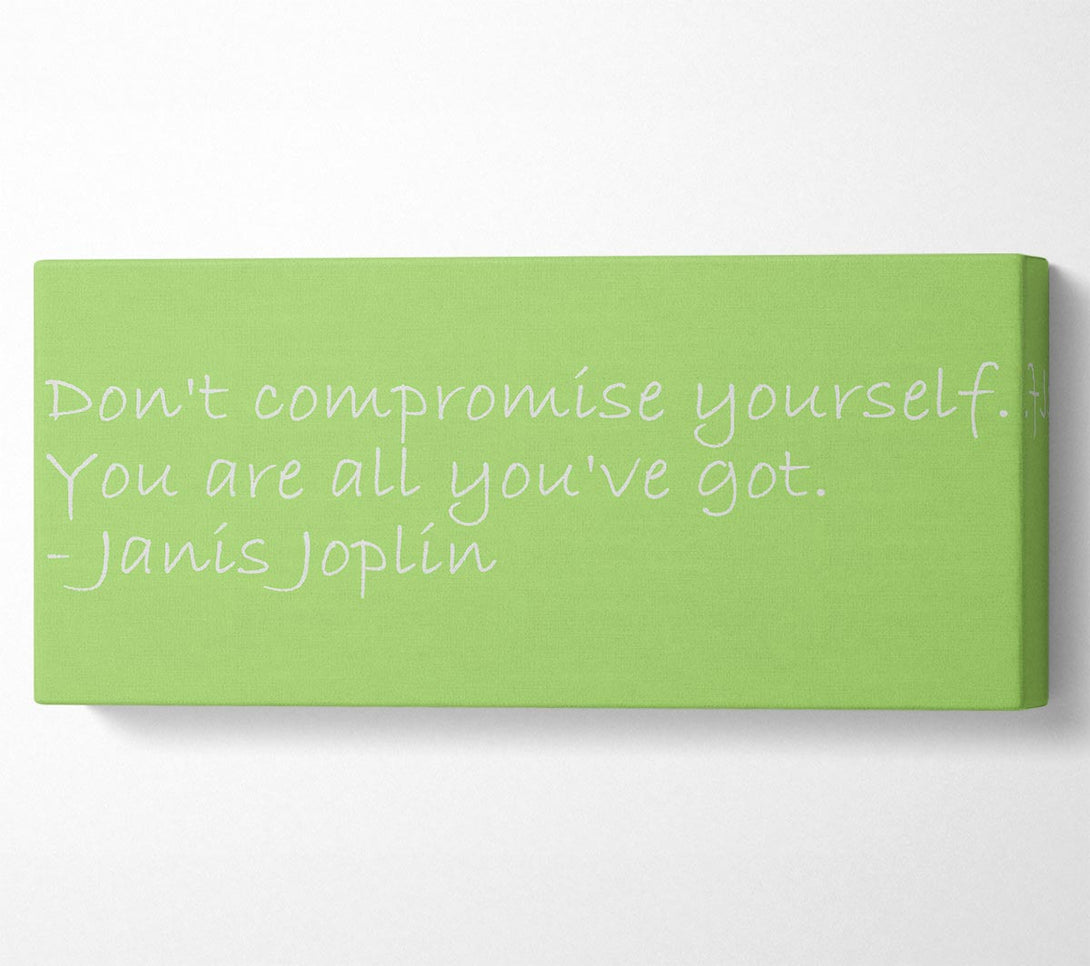 Don't compromise yourself.
You are all you've got.
- Janis Joplin